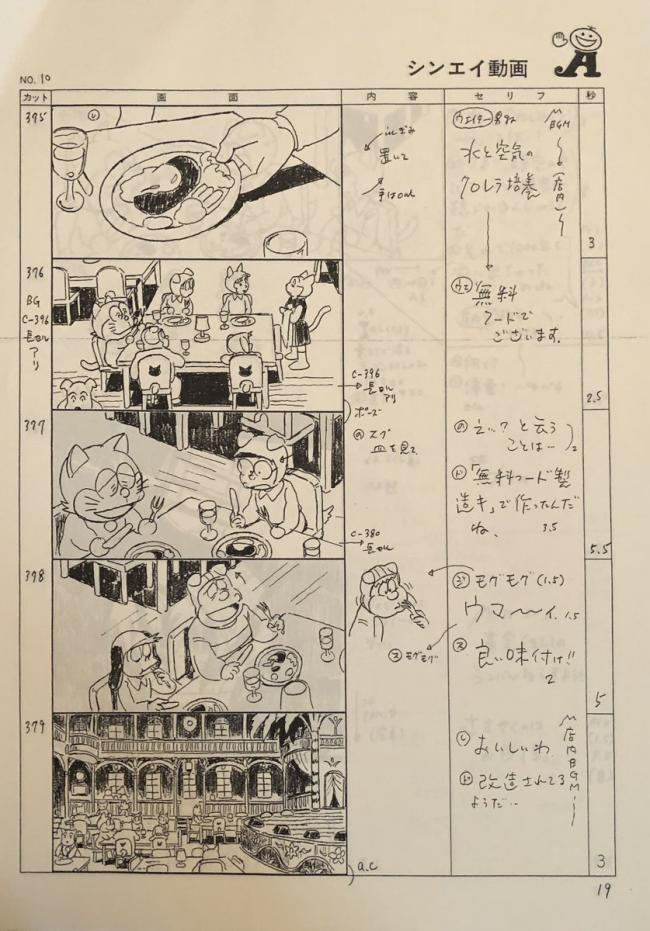 NO. 10
シンエイ動画
カット
画面
内容
セリフ
秒
375
し
置いて
手はOUT
ウエイター
BGM
(店内)
水と空気の
クロレラ培養
3
376
BG
C-396
長セル
アリ
C-396
長セル
アリ
ポーズ
ウエ
無料
フードで
ございます.
2.5
377
の スグ
皿を見る
C-380
の えっ?と云う
ことは…
2
ド 「無料フード製
造キ」で作ったんだ
ね、
3.5
5.5
378
ス モグモグ
ジ モグモグ(1.5)
ウマ〜〜ィ. 1.5
ス 良い味付け!!
2
5
379
店内BGM
し おいしいわ
ド 改造されてる
ようだ…
3
a.c
19